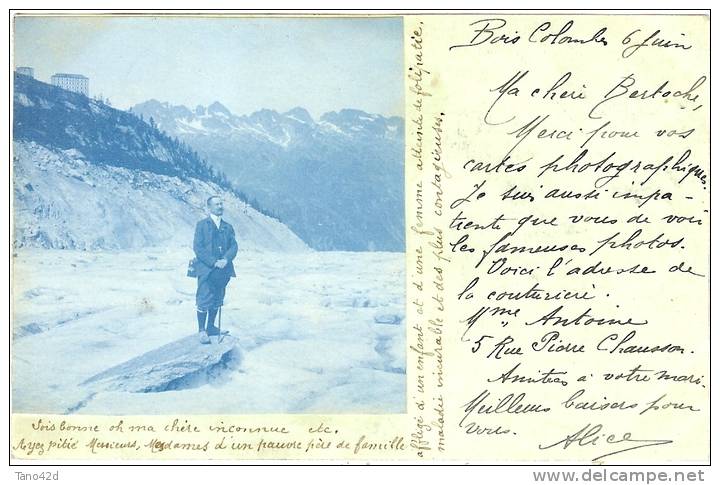 Bois Colombes 6 juin
Ma chère Bertoche,
Merci pour vos
cartes photographiques.
Je suis aussi impa-
tiente que vous de voir
les fameuses photos.
Voici l'adresse de
la couturière.
Mme Antoine
5 Rue Pierre Chausson.
Amitiés à votre mari
Meilleurs baisers pour
vous. Alice
Sois bonne oh ma chère inconnue etc.
Ayez pitié Messieurs, Mesdames d'un pauvre père de famille
affligé d'un enfant et d'une femme atteinte de folipatie.
maladie incurable et des plus contagieuses.
Tano42d
www.delcampe.net